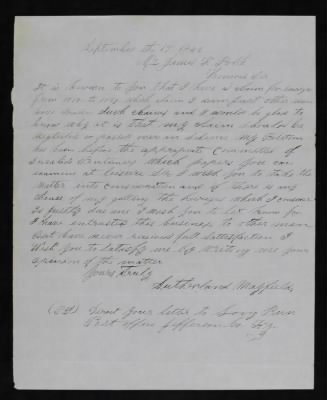 September the 19 1846
Mr James K Polk
Honored Sir
It is known to you that I have a claim for
from now to which claim I
have such claims and I would be glad to
know why it is that my claim should be
neglected or passed over in silence. My Petition
has been before the appropriate Committee of
Invalid Pentions which papers you can
examine at leisure Sir I wish you to take the
matter into consideration and if there is any
chance of my getting the which I consider
is justly due me I wish you to let know for
I have intrusted this business to other men
but have never received full satisfaction I
wish you to satisfy me by writing me your
opinion of the matter
Yours Truly
Sutherland Mayfield
(P.S.) Direct your letter to Long Run
Post office Jefferson Co Ky